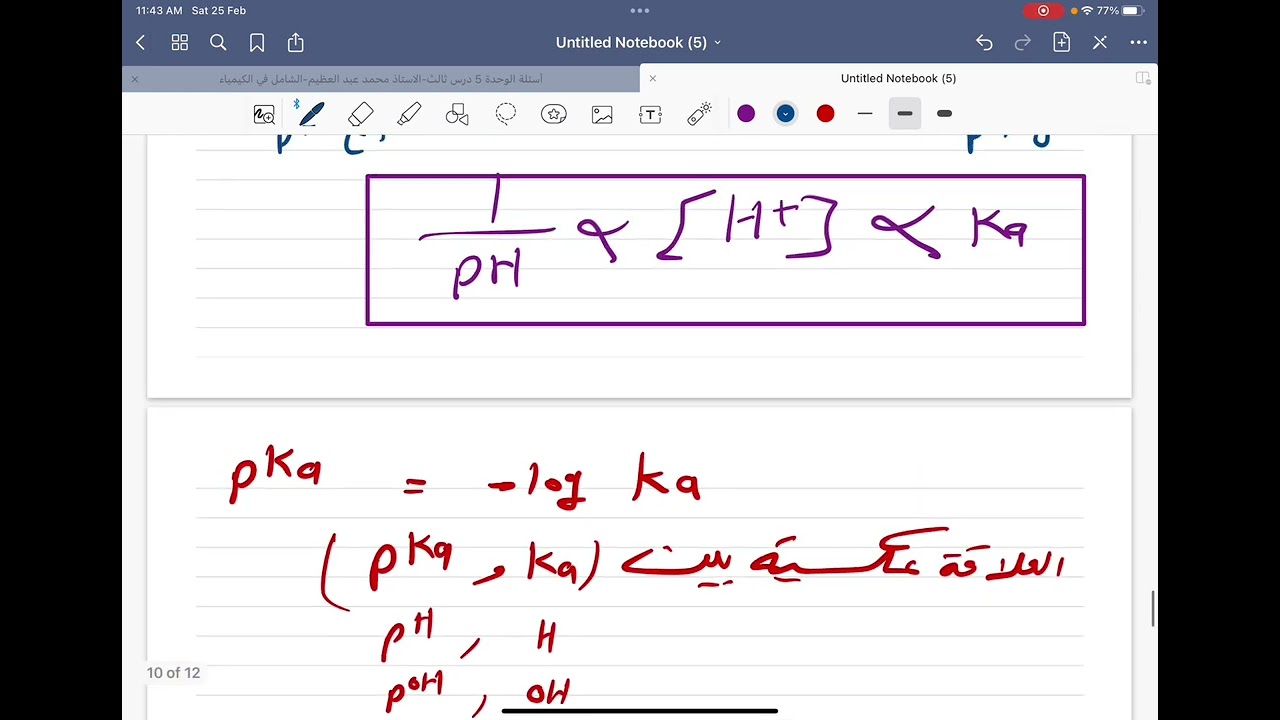 11:43 AM Sat 25 Feb
77%
Untitled Notebook (5)
أسئلة الوحدة 5 درس ثالث-الاستاذ محمد عبد العظيم-الشامل في الكيمياء
Untitled Notebook (5)
1/pH ∝ [H+] ∝ Ka
pKa = -log Ka
العلاقة عكسية بين (pKa , Ka)
pH , H
10 of 12
pOH , OH